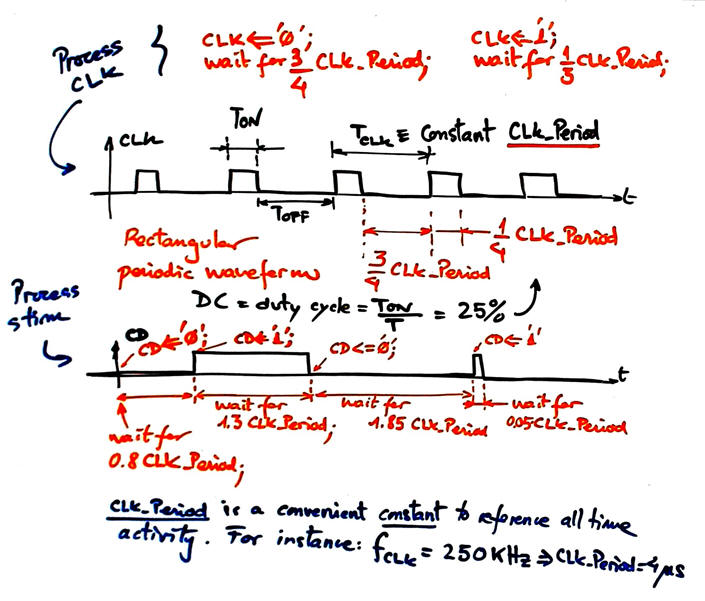 Process
CLK
CLK<='0';
wait for 3/4 CLK_Period;
CLK<='1';
wait for 1/3 CLK_Period;
CLK
TON
TCLK ≡ Constant CLK_Period
t
TOFF
Rectangular
periodic waveform
3/4 CLK_Period
1/4 CLK_Period
DC = duty cycle = TON/T = 25%
Process
stim
CD
CD<='0';
CD<='1';
CD<='0';
CD<='1'
t
wait for
0.8 CLK_Period;
wait for
1.3 CLK_Period;
wait for
1.85 CLK_Period
wait for
0.05 CLK_Period
CLK_Period is a convenient constant to reference all time
activity. For instance: fCLK = 250 KHz ⇒ CLK_Period = 4 µs